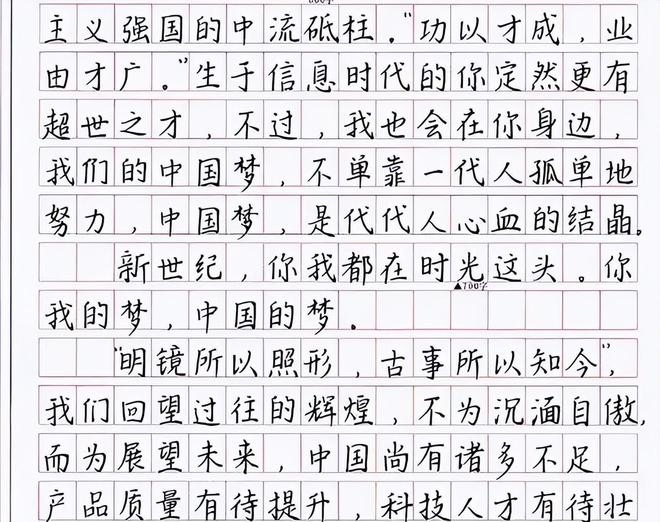 主义强国的中流砥柱。"功以才成，业
由才广。"生于信息时代的你定然更有
超世之才，不过，我也会在你身边，
我们的中国梦，不单靠一代人孤单地
努力，中国梦，是代代人心血的结晶。
新世纪，你我都在时光这头。你
▲700字
我的梦，中国的梦。
"明镜所以照形，古事所以知今"，
我们回望过往的辉煌，不为沉湎自傲，
而为展望未来，中国尚有诸多不足，
产品质量有待提升，科技人才有待壮